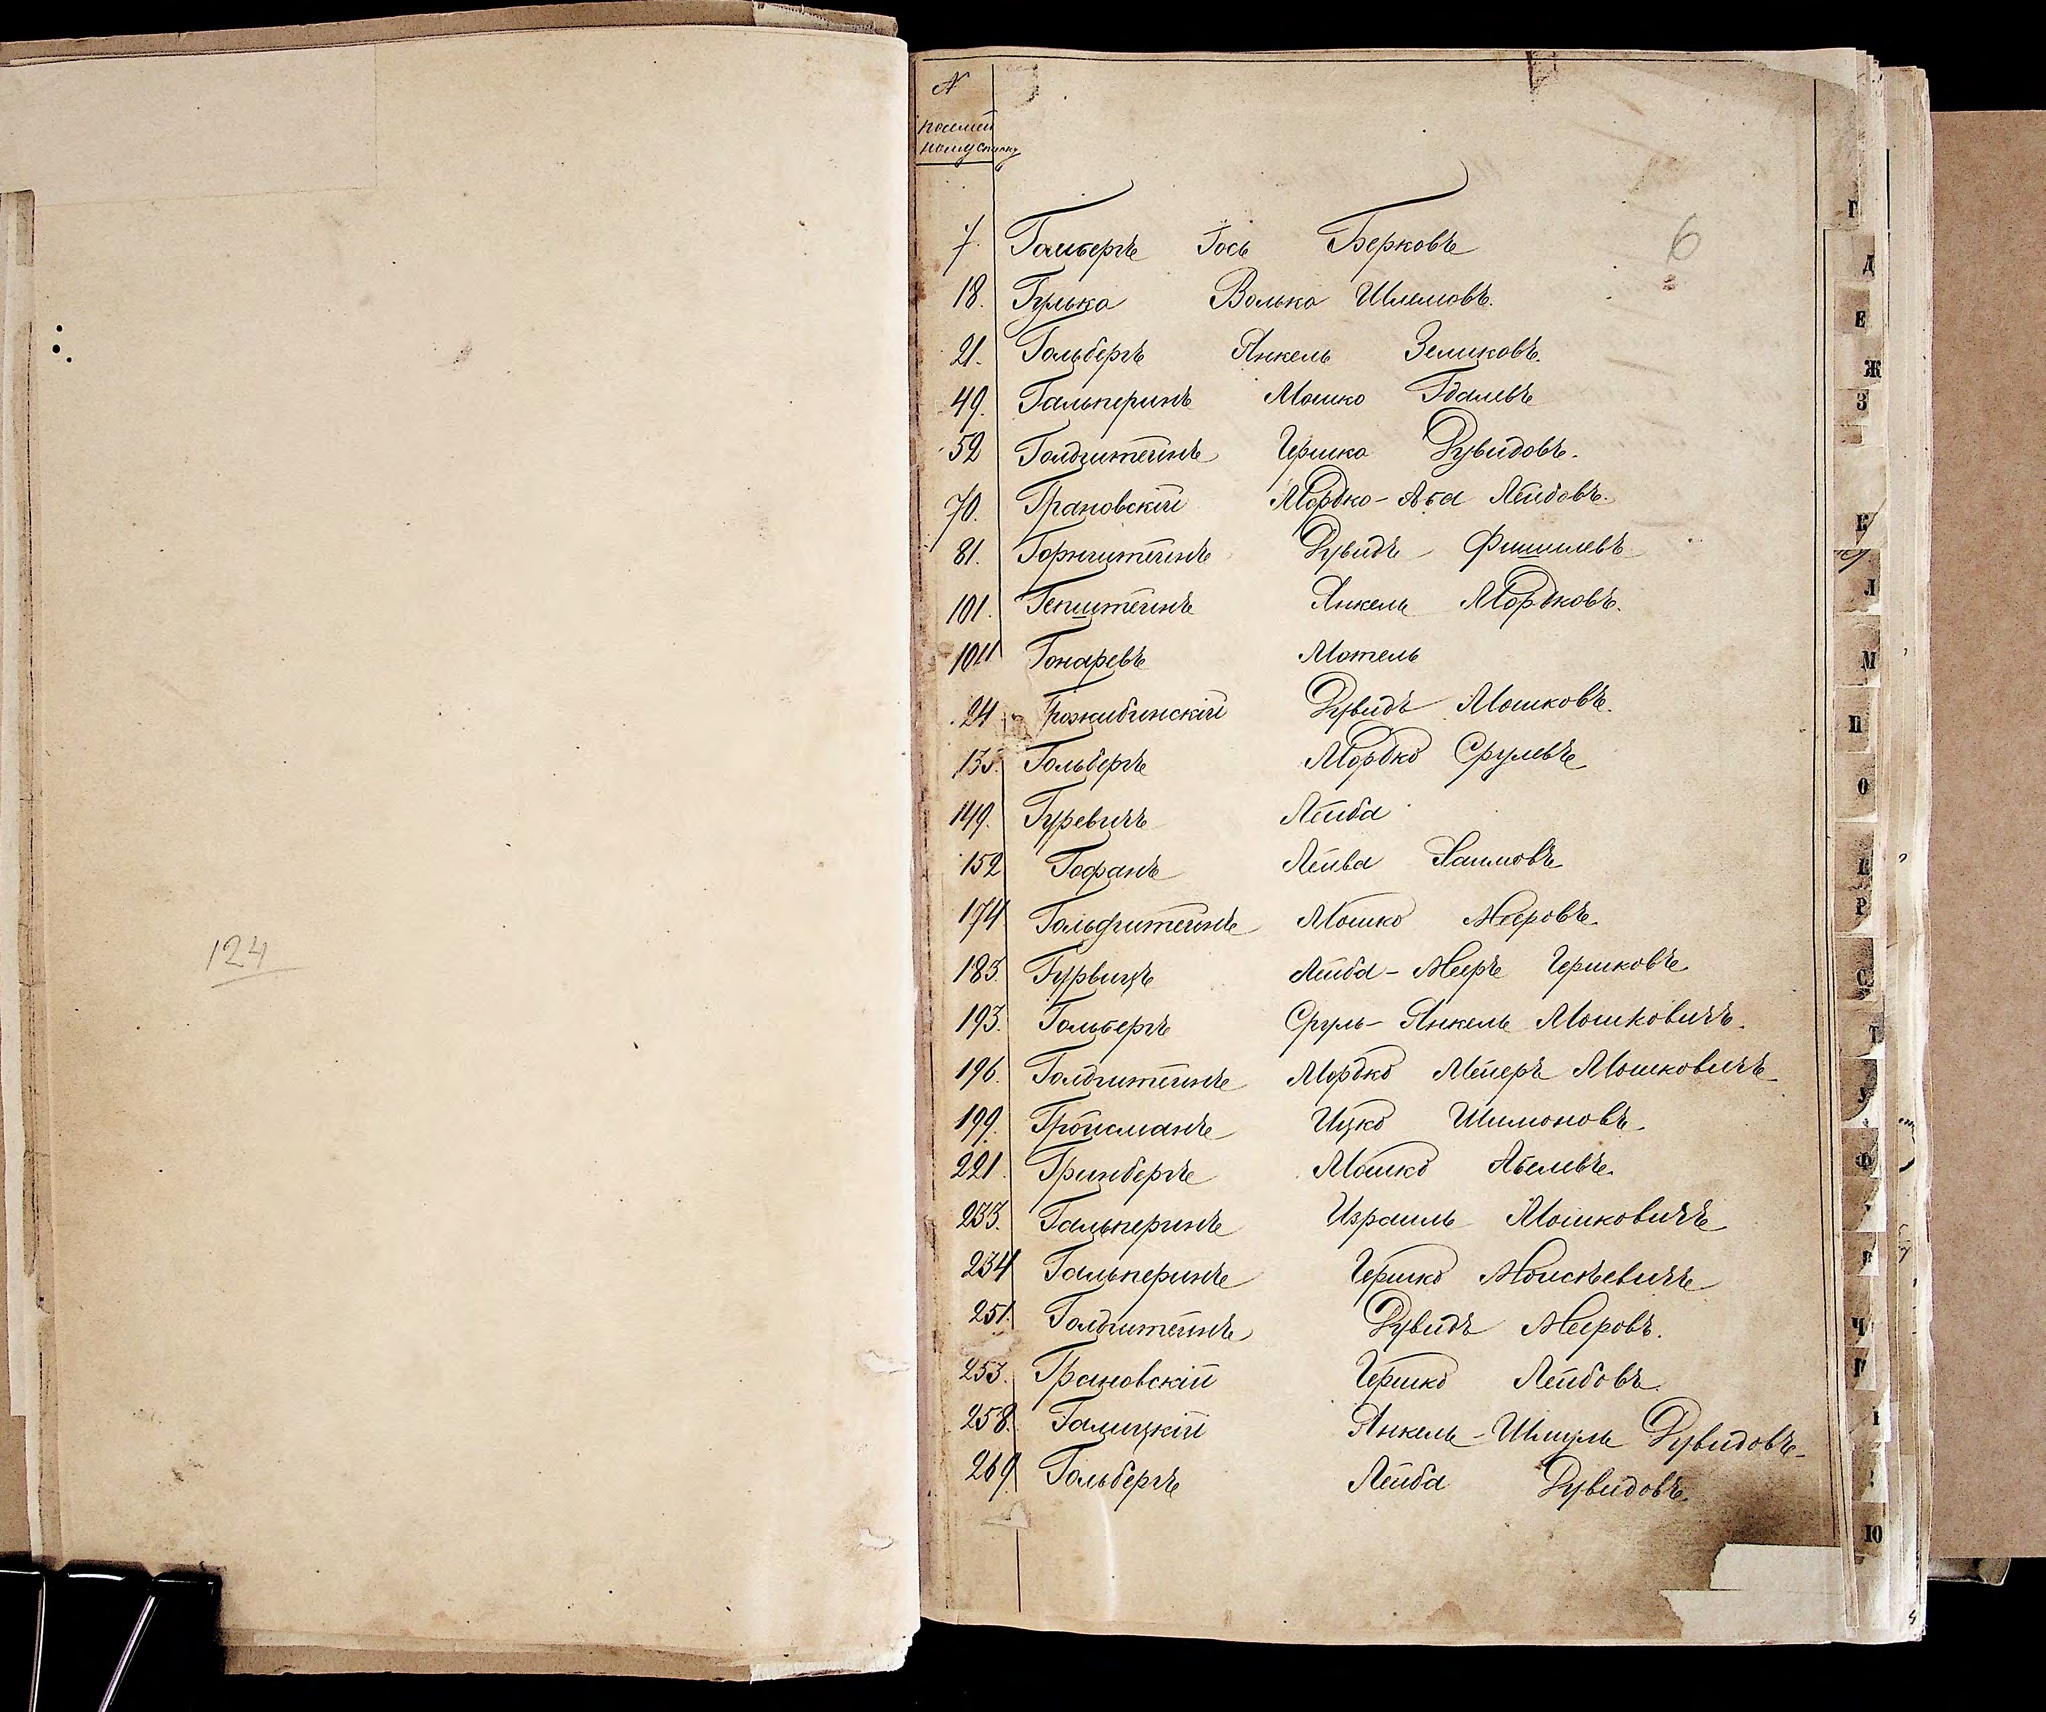 124
№
посемей
ному списку
6
7. Гольбергъ Іось Берковъ
18. Гулько Волько Шлемовъ.
21. Гольбергъ Янкель Зельковъ.
49. Гальперинъ Мошко Гдалевъ
52 Голдштейнъ Гершко Дувидовъ.
70. Грановскій Мордко-Аба Лейбовъ.
81. Горнштейнъ Дувидъ Фишилевъ
101. Гепштейнъ Янкель Мордковъ.
104 Гонаревъ Мотель
24 Грожибинскій Дувидъ Мошковъ.
135. Гольбергъ Мордко Срулевъ
149. Гуревичъ Лейба
152 Гофанъ Лейба Хаимовъ
174 Гольдштейнъ Мошко Мееровъ
183. Гурвицъ Лейба-Мееръ Гершковъ
193. Гольбергъ Сруль-Янкель Мошковичъ.
196. Голдштейнъ Мордко Мейеръ Мошковичъ
199. Гройсманъ Ицко Шимоновъ
221 Гринбергъ Мошко Абелевъ.
233. Гальперинъ Израиль Мошковичъ
234 Гальперинъ Гершко Моисѣевичъ
251. Голдштейнъ Дувидъ Мееровъ.
253. Грановскій Гершко Лейбовъ
258. Галицкій Янкель-Шмуль Дувидовъ
269. Гольбергъ Лейба Дувидовъ.
Г
Д
Е
Ж
З
К
Л
М
П
О
Р
С
Т
У
Ф
Ч
Ю